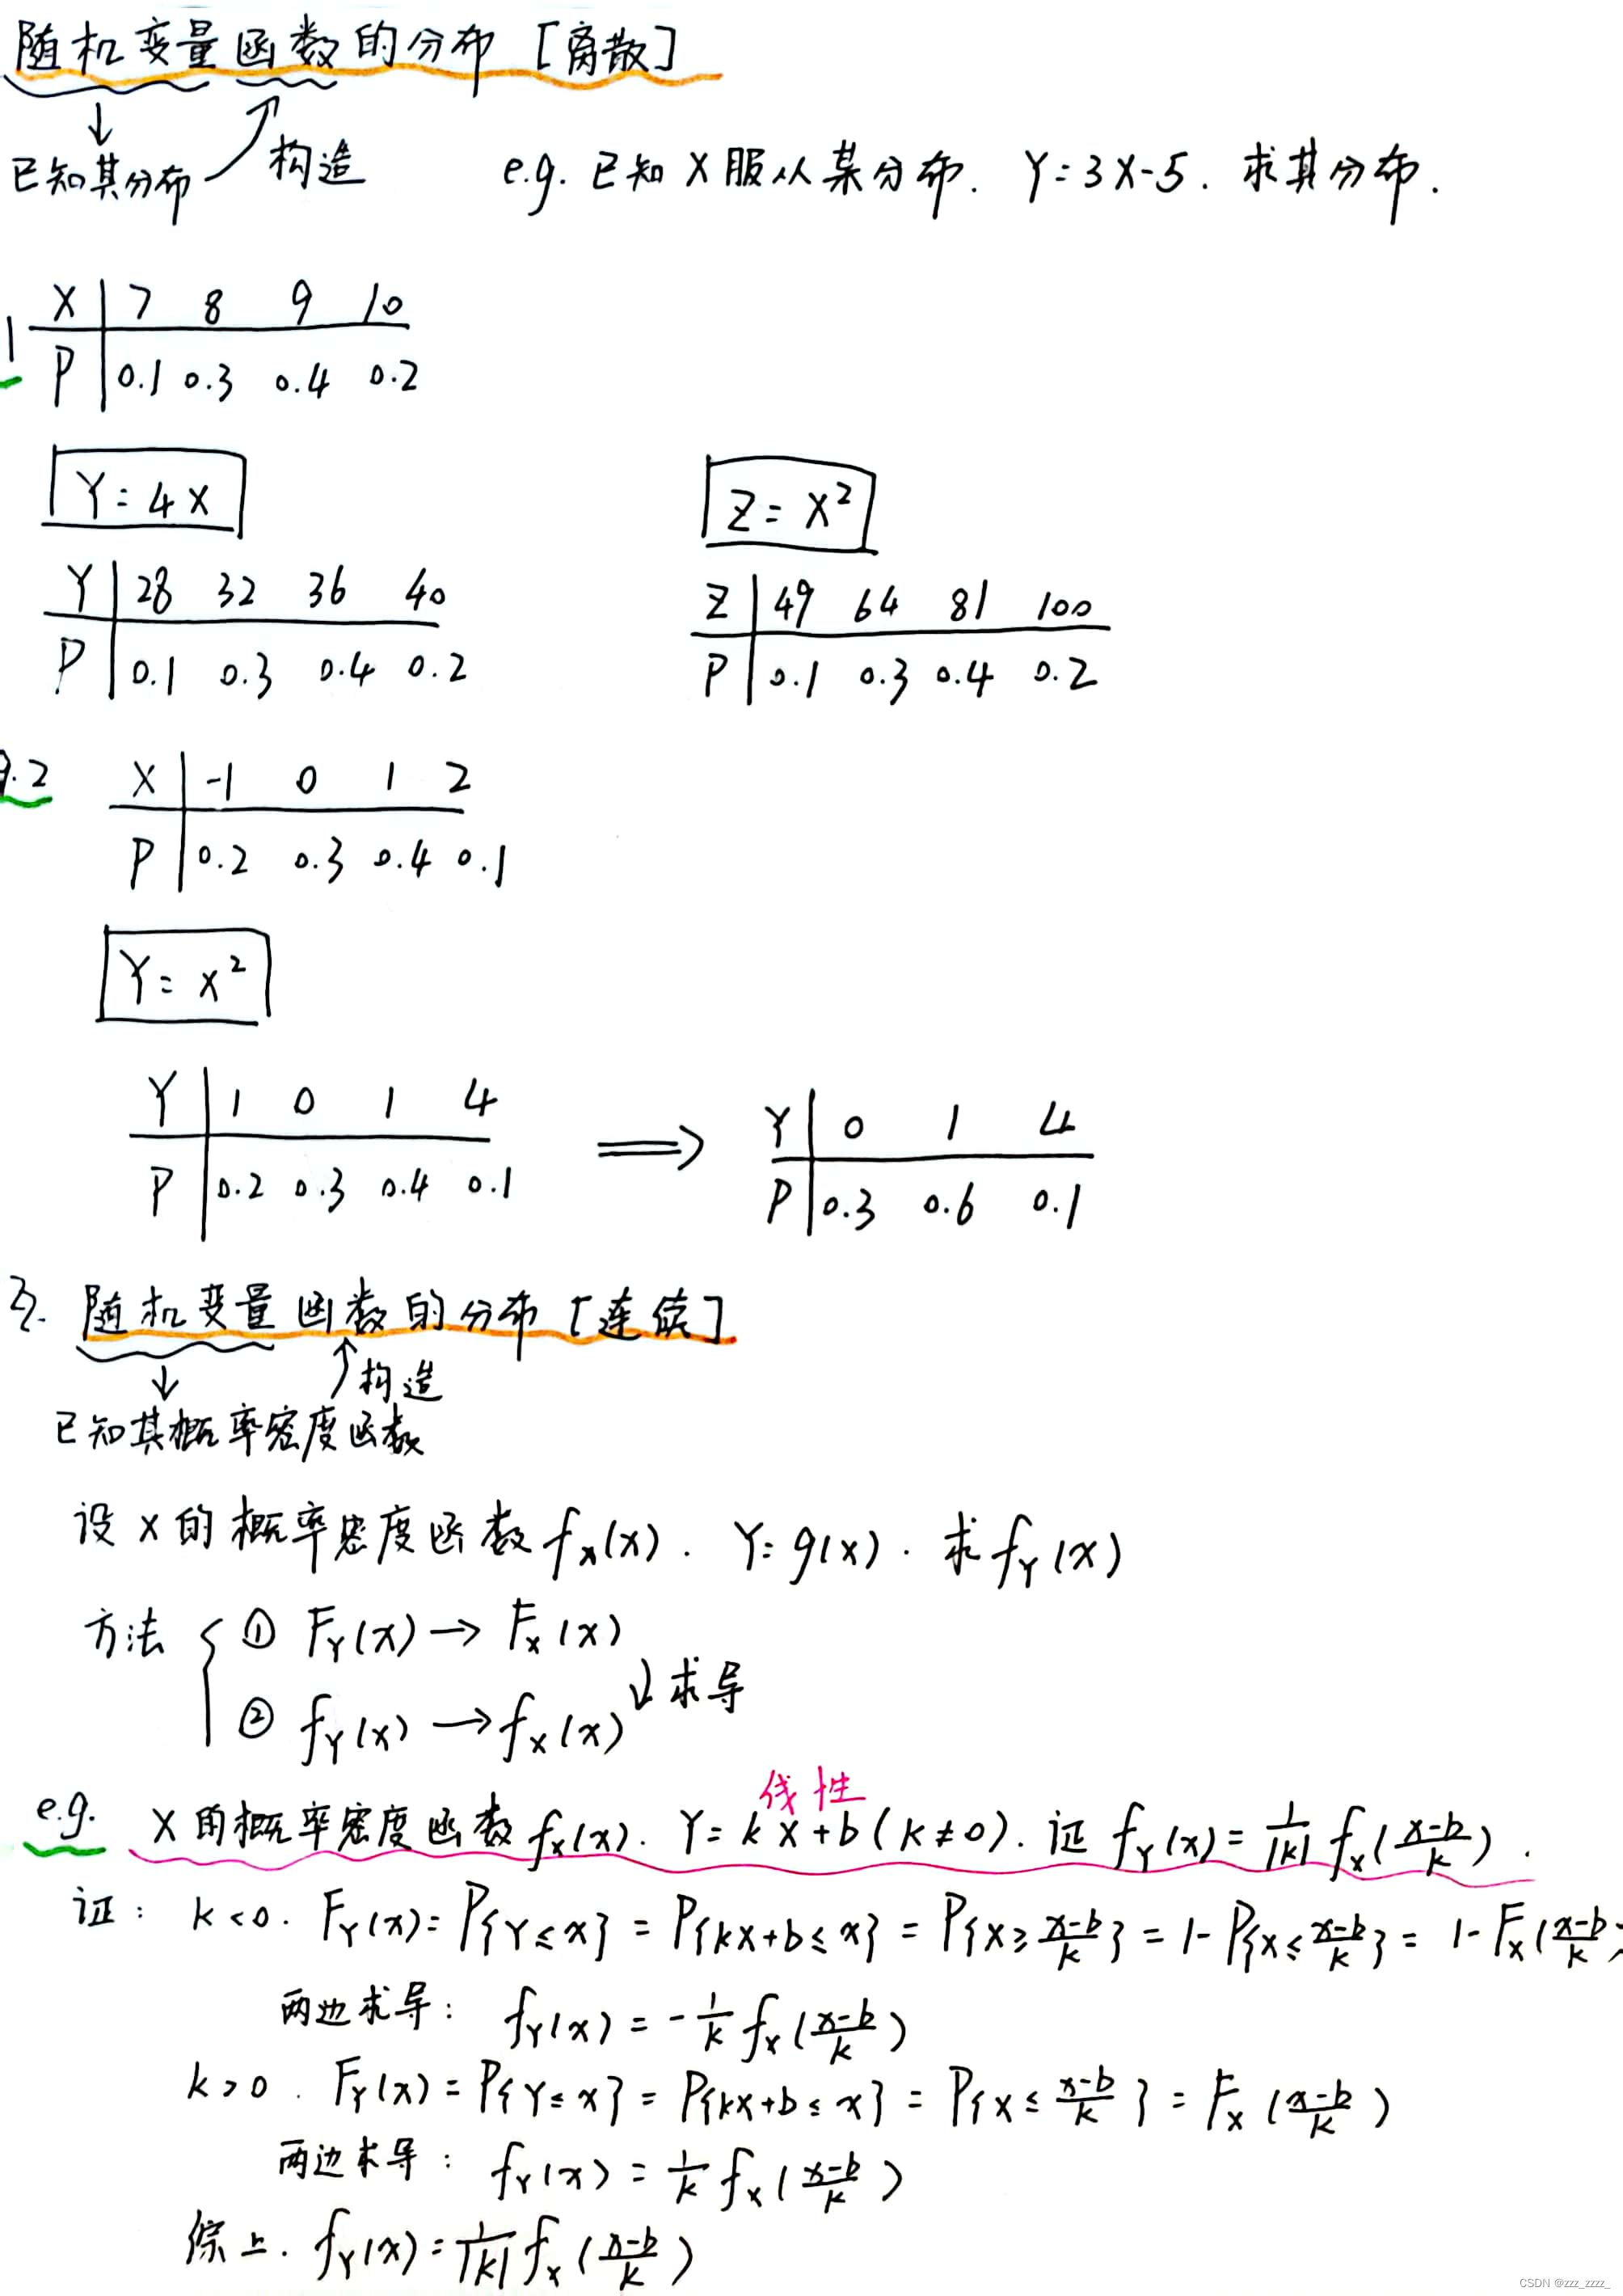 随机变量函数的分布 [离散]
已知其分布 构造 e.g. 已知 X 服从某分布. Y=3X-5. 求其分布.
1 X 7 8 9 10
P 0.1 0.3 0.4 0.2
Y=4X Z=X²
Y 28 32 36 40 Z 49 64 81 100
P 0.1 0.3 0.4 0.2 P 0.1 0.3 0.4 0.2
.2 X -1 0 1 2
P 0.2 0.3 0.4 0.1
Y=X²
Y 1 0 1 4 ⟹ Y 0 1 4
P 0.2 0.3 0.4 0.1 P 0.3 0.6 0.1
随机变量函数的分布 [连续]
构造
已知其概率密度函数
设 X 的概率密度函数 f_X(x). Y=g(x). 求 f_Y(x)
方法 { ① F_Y(x) → F_X(x)
↓求导
② f_Y(x) → f_X(x)
线性
e.g. X 的概率密度函数 f_X(x). Y=kX+b (k≠0). 证 f_Y(x)=1/|k| f_X((x-b)/k).
证: k<0. F_Y(x)=P{Y≤x}=P{kX+b≤x}=P{X≥(x-b)/k}=1-P{X≤(x-b)/k}=1-F_X((x-b)/k)
两边求导: f_Y(x)=-1/k f_X((x-b)/k)
k>0. F_Y(x)=P{Y≤x}=P{kX+b≤x}=P{X≤(x-b)/k}=F_X((x-b)/k)
两边求导: f_Y(x)=1/k f_X((x-b)/k)
综上. f_Y(x)=1/|k| f_X((x-b)/k)
CSDN @zzz_zzzz_